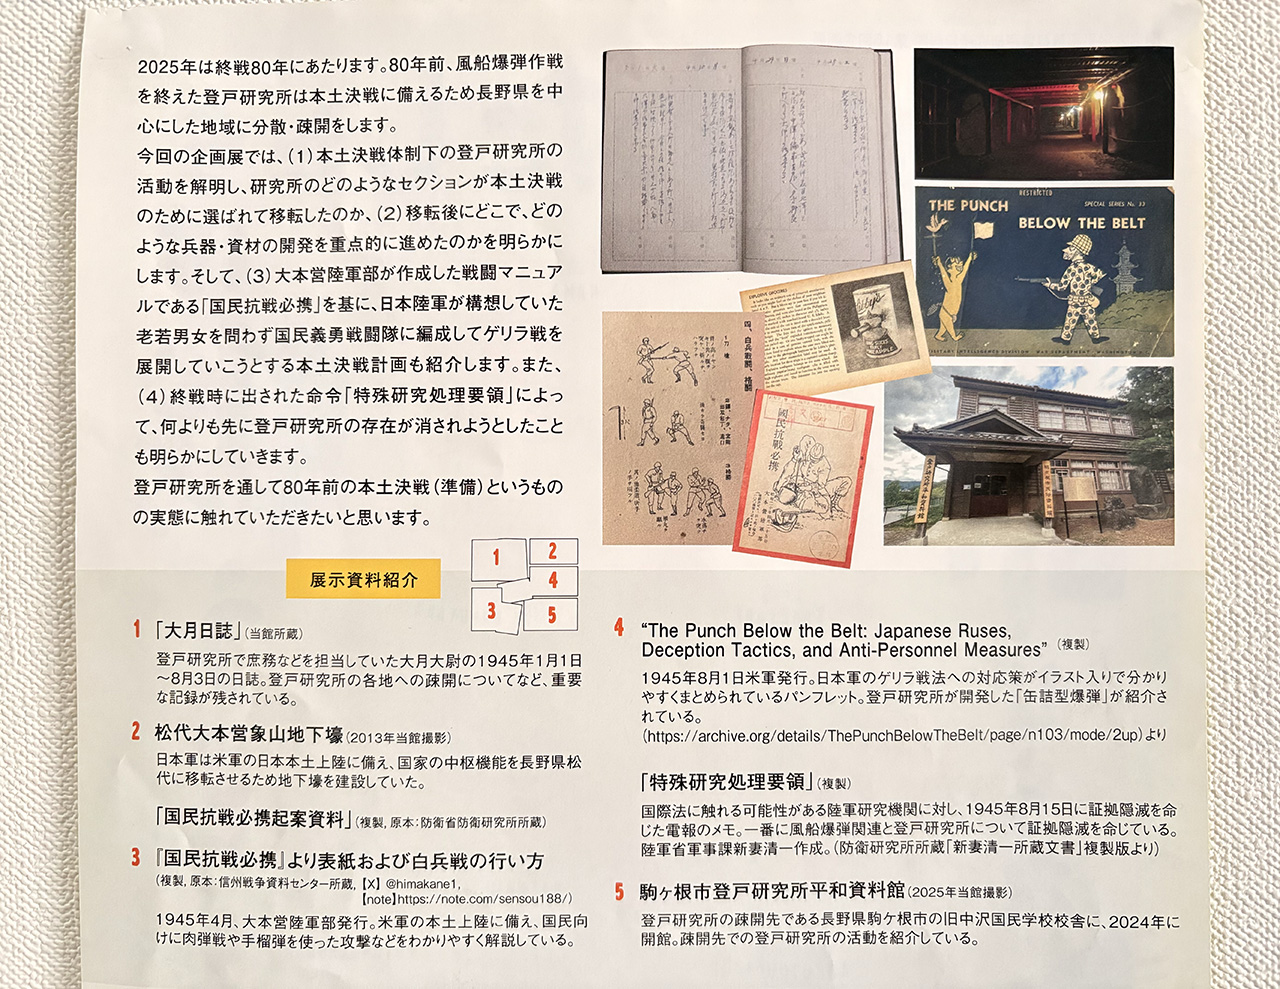 2025年は終戦80年にあたります。80年前、風船爆弾作戦
を終えた登戸研究所は本土決戦に備えるため長野県を中
心にした地域に分散・疎開をします。
今回の企画展では、(1)本土決戦体制下の登戸研究所の
活動を解明し、研究所のどのようなセクションが本土決戦
のために選ばれて移転したのか、(2)移転後にどこで、どの
ような兵器・資材の開発を重点的に進めたのかを明らかに
します。そして、(3)大本営陸軍部が作成した戦闘マニュア
ルである「国民抗戦必携」を基に、日本陸軍が構想していた
老若男女を問わず国民義勇戦闘隊に編成してゲリラ戦を
展開していこうとする本土決戦計画も紹介します。また、
(4)終戦時に出された命令「特殊研究処理要領」によっ
て、何よりも先に登戸研究所の存在が消されようとしたこと
も明らかにしていきます。
登戸研究所を通して80年前の本土決戦(準備)というもの
の実態に触れていただきたいと思います。
RESTRICTED
SPECIAL SERIES No. 33
THE PUNCH
BELOW THE BELT
EXPLOSIVE GROCERIES
四、白兵戦闘、格闘
國民抗戰必携
展示資料紹介
1
2
3
4
5
1 「大月日誌」(当館所蔵)
登戸研究所で庶務などを担当していた大月大尉の1945年1月1日
〜8月3日の日誌。登戸研究所の各地への疎開についてなど、重要
な記録が残されている。
2 松代大本営象山地下壕(2013年当館撮影)
日本軍は米軍の日本本土上陸に備え、国家の中枢機能を長野県松
代に移転させるため地下壕を建設していた。
「国民抗戦必携起案資料」(複製, 原本:防衛省防衛研究所所蔵)
3 『国民抗戦必携』より表紙および白兵戦の行い方
(複製, 原本:信州戦争資料センター所蔵, 【X】 @himakane1,
【note】https://note.com/sensou188/)
1945年4月、大本営陸軍部発行。米軍の本土上陸に備え、国民向
けに肉弾戦や手榴弾を使った攻撃などをわかりやすく解説している。
4 “The Punch Below the Belt: Japanese Ruses,
Deception Tactics, and Anti-Personnel Measures” (複製)
1945年8月1日米軍発行。日本軍のゲリラ戦法への対応策がイラスト入りで分かり
やすくまとめられているパンフレット。登戸研究所が開発した「缶詰型爆弾」が紹介さ
れている。
(https://archive.org/details/ThePunchBelowTheBelt/page/n103/mode/2up)より
「特殊研究処理要領」(複製)
国際法に触れる可能性がある陸軍研究機関に対し、1945年8月15日に証拠隠滅を命
じた電報のメモ。一番に風船爆弾関連と登戸研究所について証拠隠滅を命じている。
陸軍省軍事課新妻清一作成。(防衛研究所所蔵「新妻清一所蔵文書」複製版より)
5 駒ヶ根市登戸研究所平和資料館(2025年当館撮影)
登戸研究所の疎開先である長野県駒ケ根市の旧中沢国民学校校舎に、2024年に
開館。疎開先での登戸研究所の活動を紹介している。